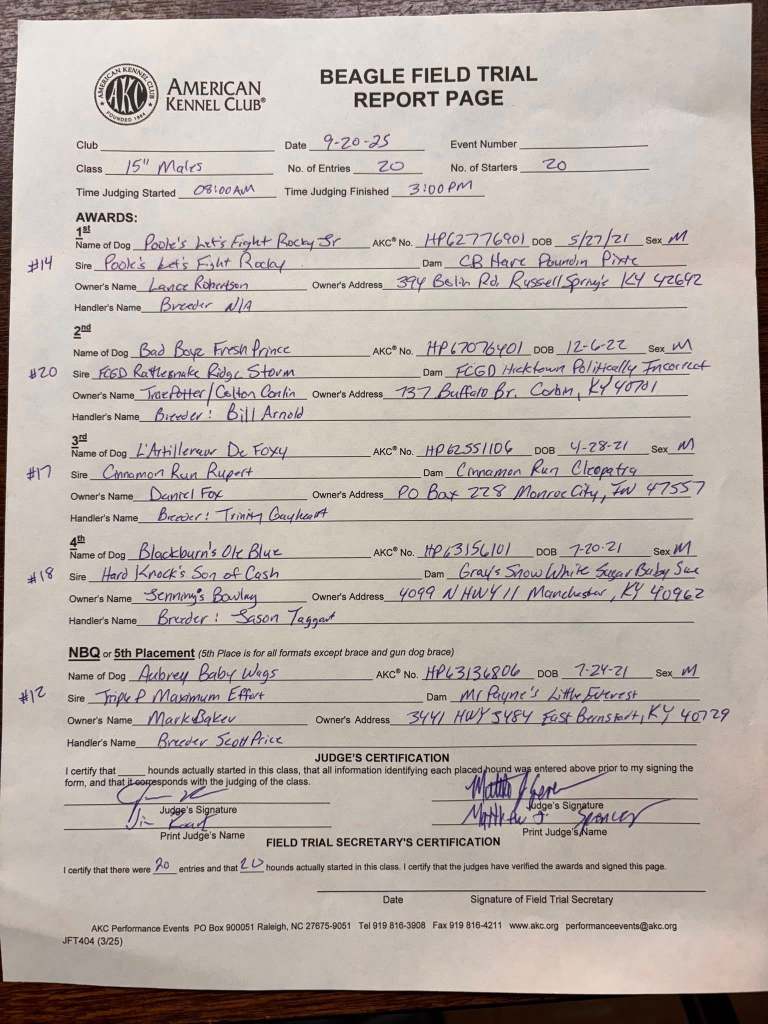 AMERICAN KENNEL CLUB
AKC
FOUNDED 1884
AMERICAN
KENNEL CLUB®
BEAGLE FIELD TRIAL
REPORT PAGE
Club Date 9-20-25 Event Number
Class 15" Males No. of Entries 20 No. of Starters 20
Time Judging Started 08:00AM Time Judging Finished 3:00PM
AWARDS:
1st
Name of Dog Poole's Let's Fight Rocky Jr AKC® No. HP62776901 DOB 5/27/21 Sex M
#14 Sire Poole's Let's Fight Rocky Dam CB Hare Poundin Pixie
Owner's Name Lance Robertson Owner's Address 394 Beslin Rd. Russell Spring's KY 42642
Handler's Name Breeder N/A
2nd
Name of Dog Bad Boyz Fresh Prince AKC® No. HP67076401 DOB 12-6-22 Sex M
#20 Sire FCGD Rattlesnake Ridge Storm Dam FCGD Hicktown Politically Incorrect
Owner's Name Trae Potter/Colton Conlin Owner's Address 737 Buffalo Br. Corbin, KY 40701
Handler's Name Breeder: Bill Arnold
3rd
Name of Dog L'Artilleraur De Foxy AKC® No. HP62551106 DOB 4-28-21 Sex M
#17 Sire Cinnamon Run Rupert Dam Cinnamon Run Cleopatra
Owner's Name Daniel Fox Owner's Address PO Box 228 Monroe City, IN 47557
Handler's Name Breeder: Trinity Gayheart
4th
Name of Dog Blackburn's Ole Blue AKC® No. HP63156101 DOB 7-20-21 Sex M
#18 Sire Hard Knock's Son of Cash Dam Gray's Snow White Sugar Baby Sue
Owner's Name Jenning's Bowling Owner's Address 4099 N HWY 11 Manchester, KY 40962
Handler's Name Breeder: Jason Taggart
NBQ or 5th Placement (5th Place is for all formats except brace and gun dog brace)
Name of Dog Aubrey Baby Wags AKC® No. HP63136806 DOB 7-24-21 Sex M
#12 Sire Triple P Maximum Effort Dam Mr Payne's Little Everest
Owner's Name Mark Baker Owner's Address 3441 HWY 3484 East Bernstadt, KY 40729
Handler's Name Breeder Scott Price
JUDGE'S CERTIFICATION
I certify that hounds actually started in this class, that all information identifying each placed hound was entered above prior to my signing the
form, and that it corresponds with the judging of the class.
Judge's Signature Judge's Signature
Jim Matthew J. Spencer
Print Judge's Name Print Judge's Name
FIELD TRIAL SECRETARY'S CERTIFICATION
I certify that there were 20 entries and that 20 hounds actually started in this class. I certify that the judges have verified the awards and signed this page.
Date Signature of Field Trial Secretary
AKC Performance Events PO Box 900051 Raleigh, NC 27675-9051 Tel 919 816-3908 Fax 919 816-4211 www.akc.org performanceevents@akc.org
JFT404 (3/25)